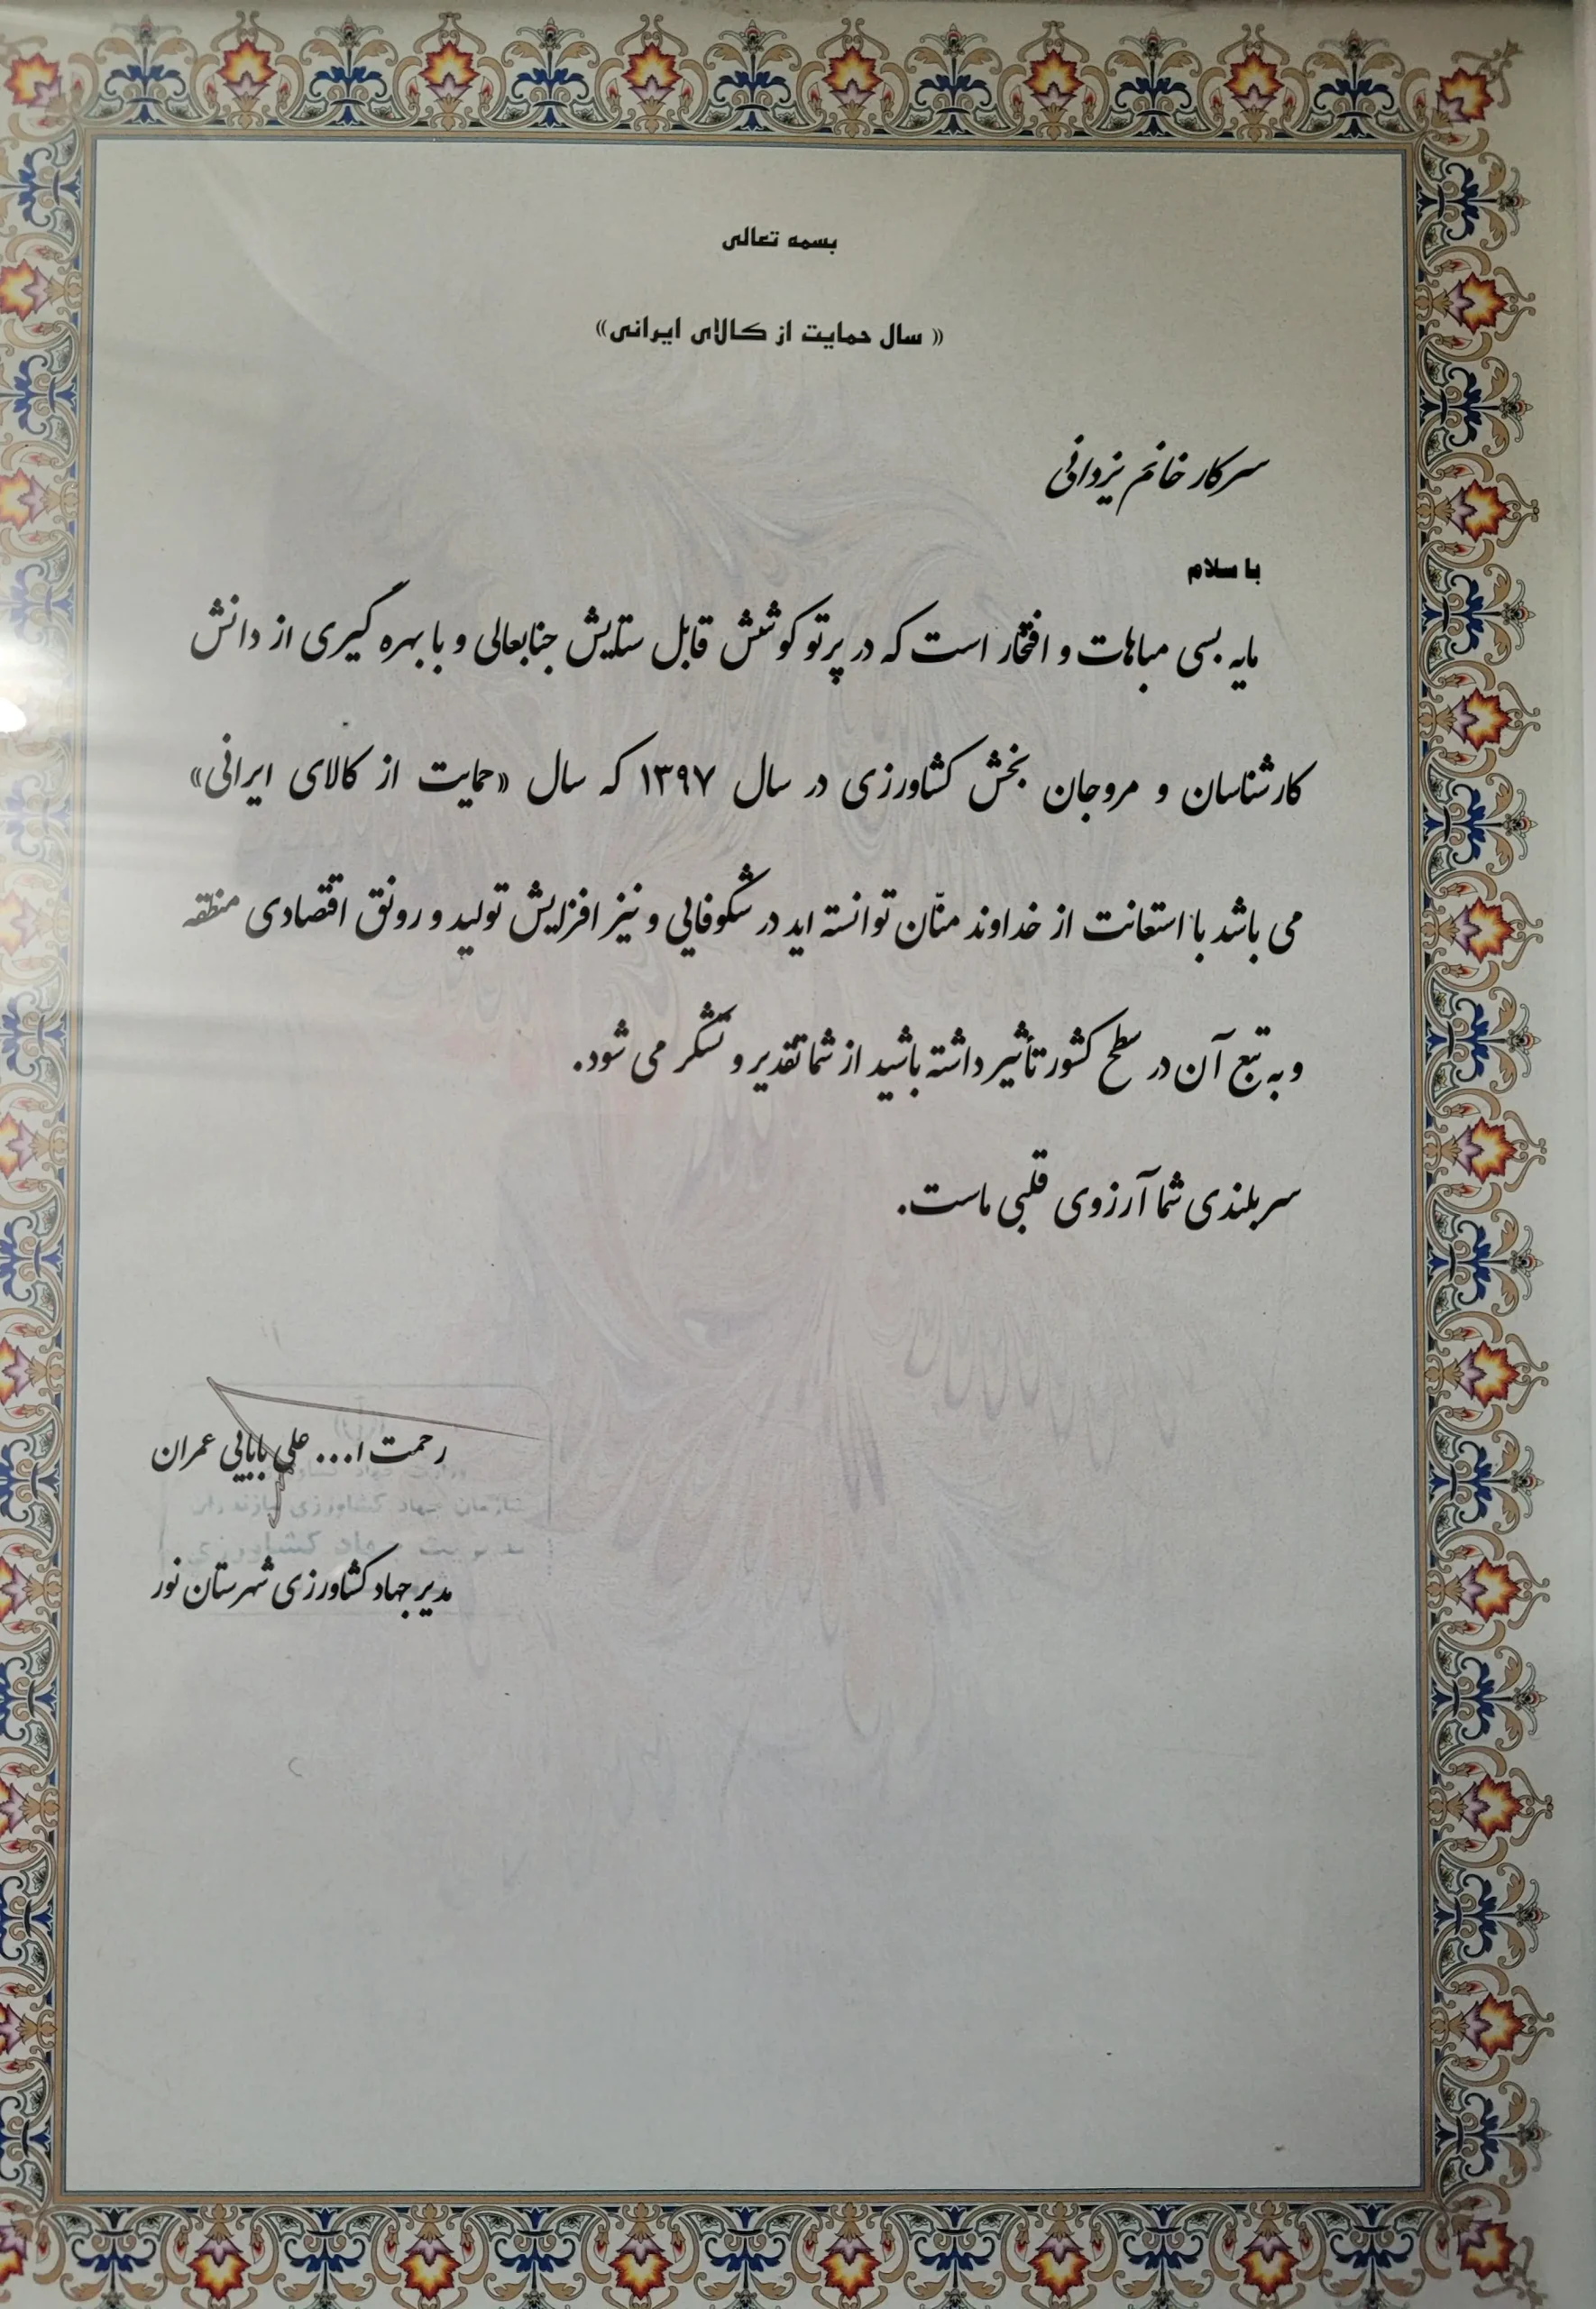 بسمه تعالی
« سال حمایت از کالای ایرانی»
سرکار خانم یزدانی
با سلام
مایه بسی مباهات و افتخار است که در پرتو کوشش قابل ستایش جنابعالی و با بهره گیری از دانش
کارشناسان و مروجان بخش کشاورزی در سال ۱۳۹۷ که سال «حمایت از کالای ایرانی»
می باشد با استعانت از خداوند منّان توانسته اید در شکوفایی و نیز افزایش تولید و رونق اقتصادی منطقه
و به تبع آن در سطح کشور تأثیر داشته باشید از شما تقدیر و تشکر می شود.
سربلندی شما آرزوی قلبی ماست.
رحمت ا... علی بابایی عمران
سازمان جهاد کشاورزی مازندران
مدیریت جهاد کشاورزی
مدیر جهاد کشاورزی شهرستان نور